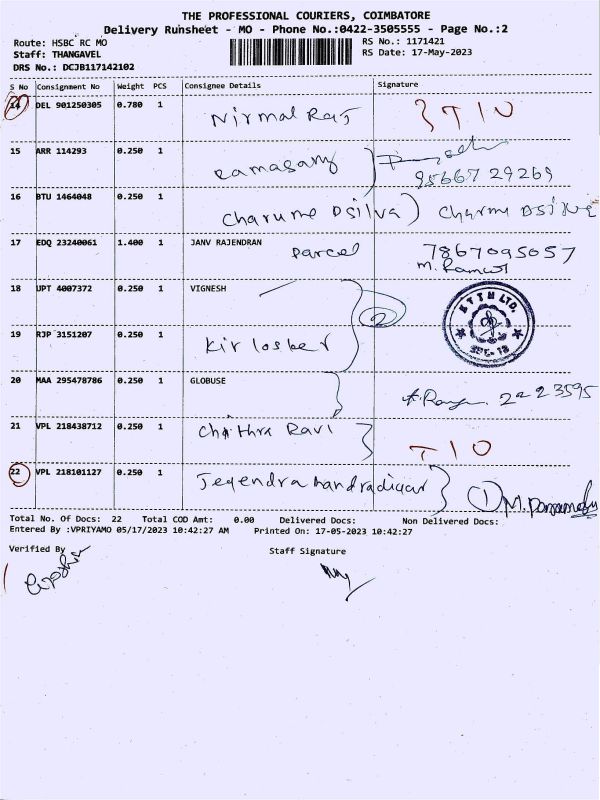 THE PROFESSIONAL COURIERS, COIMBATORE
Delivery Runsheet - MO - Phone No.:0422-3505555 - Page No.:2
Route: HSBC RC MO RS No.: 1171421
Staff: THANGAVEL RS Date: 17-May-2023
DRS No.: DCJB117142102
S No Consignment No Weight PCS Consignee Details Signature
14 DEL 901250305 0.780 1 Nirmal Raj T I O
15 ARR 114293 0.250 1 Ramasamy
95667 29269
16 BTU 1464048 0.250 1 Charume Dsilva
17 EDQ 23240061 1.400 1 JANV RAJENDRAN
Parcel 7867095057
18 UPT 4007372 0.250 1 VIGNESH
2
19 RJP 3151207 0.250 1 Kirlosker
20 MAA 295478786 0.250 1 GLOBUSE
2223595
21 VPL 218438712 0.250 1 Chithra Ravi
T I O
22 VPL 218101127 0.250 1
1
Total No. Of Docs: 22 Total COD Amt: 0.00 Delivered Docs: Non Delivered Docs:
Entered By :VPRIYAMO 05/17/2023 10:42:27 AM Printed On: 17-05-2023 10:42:27
Verified By Staff Signature